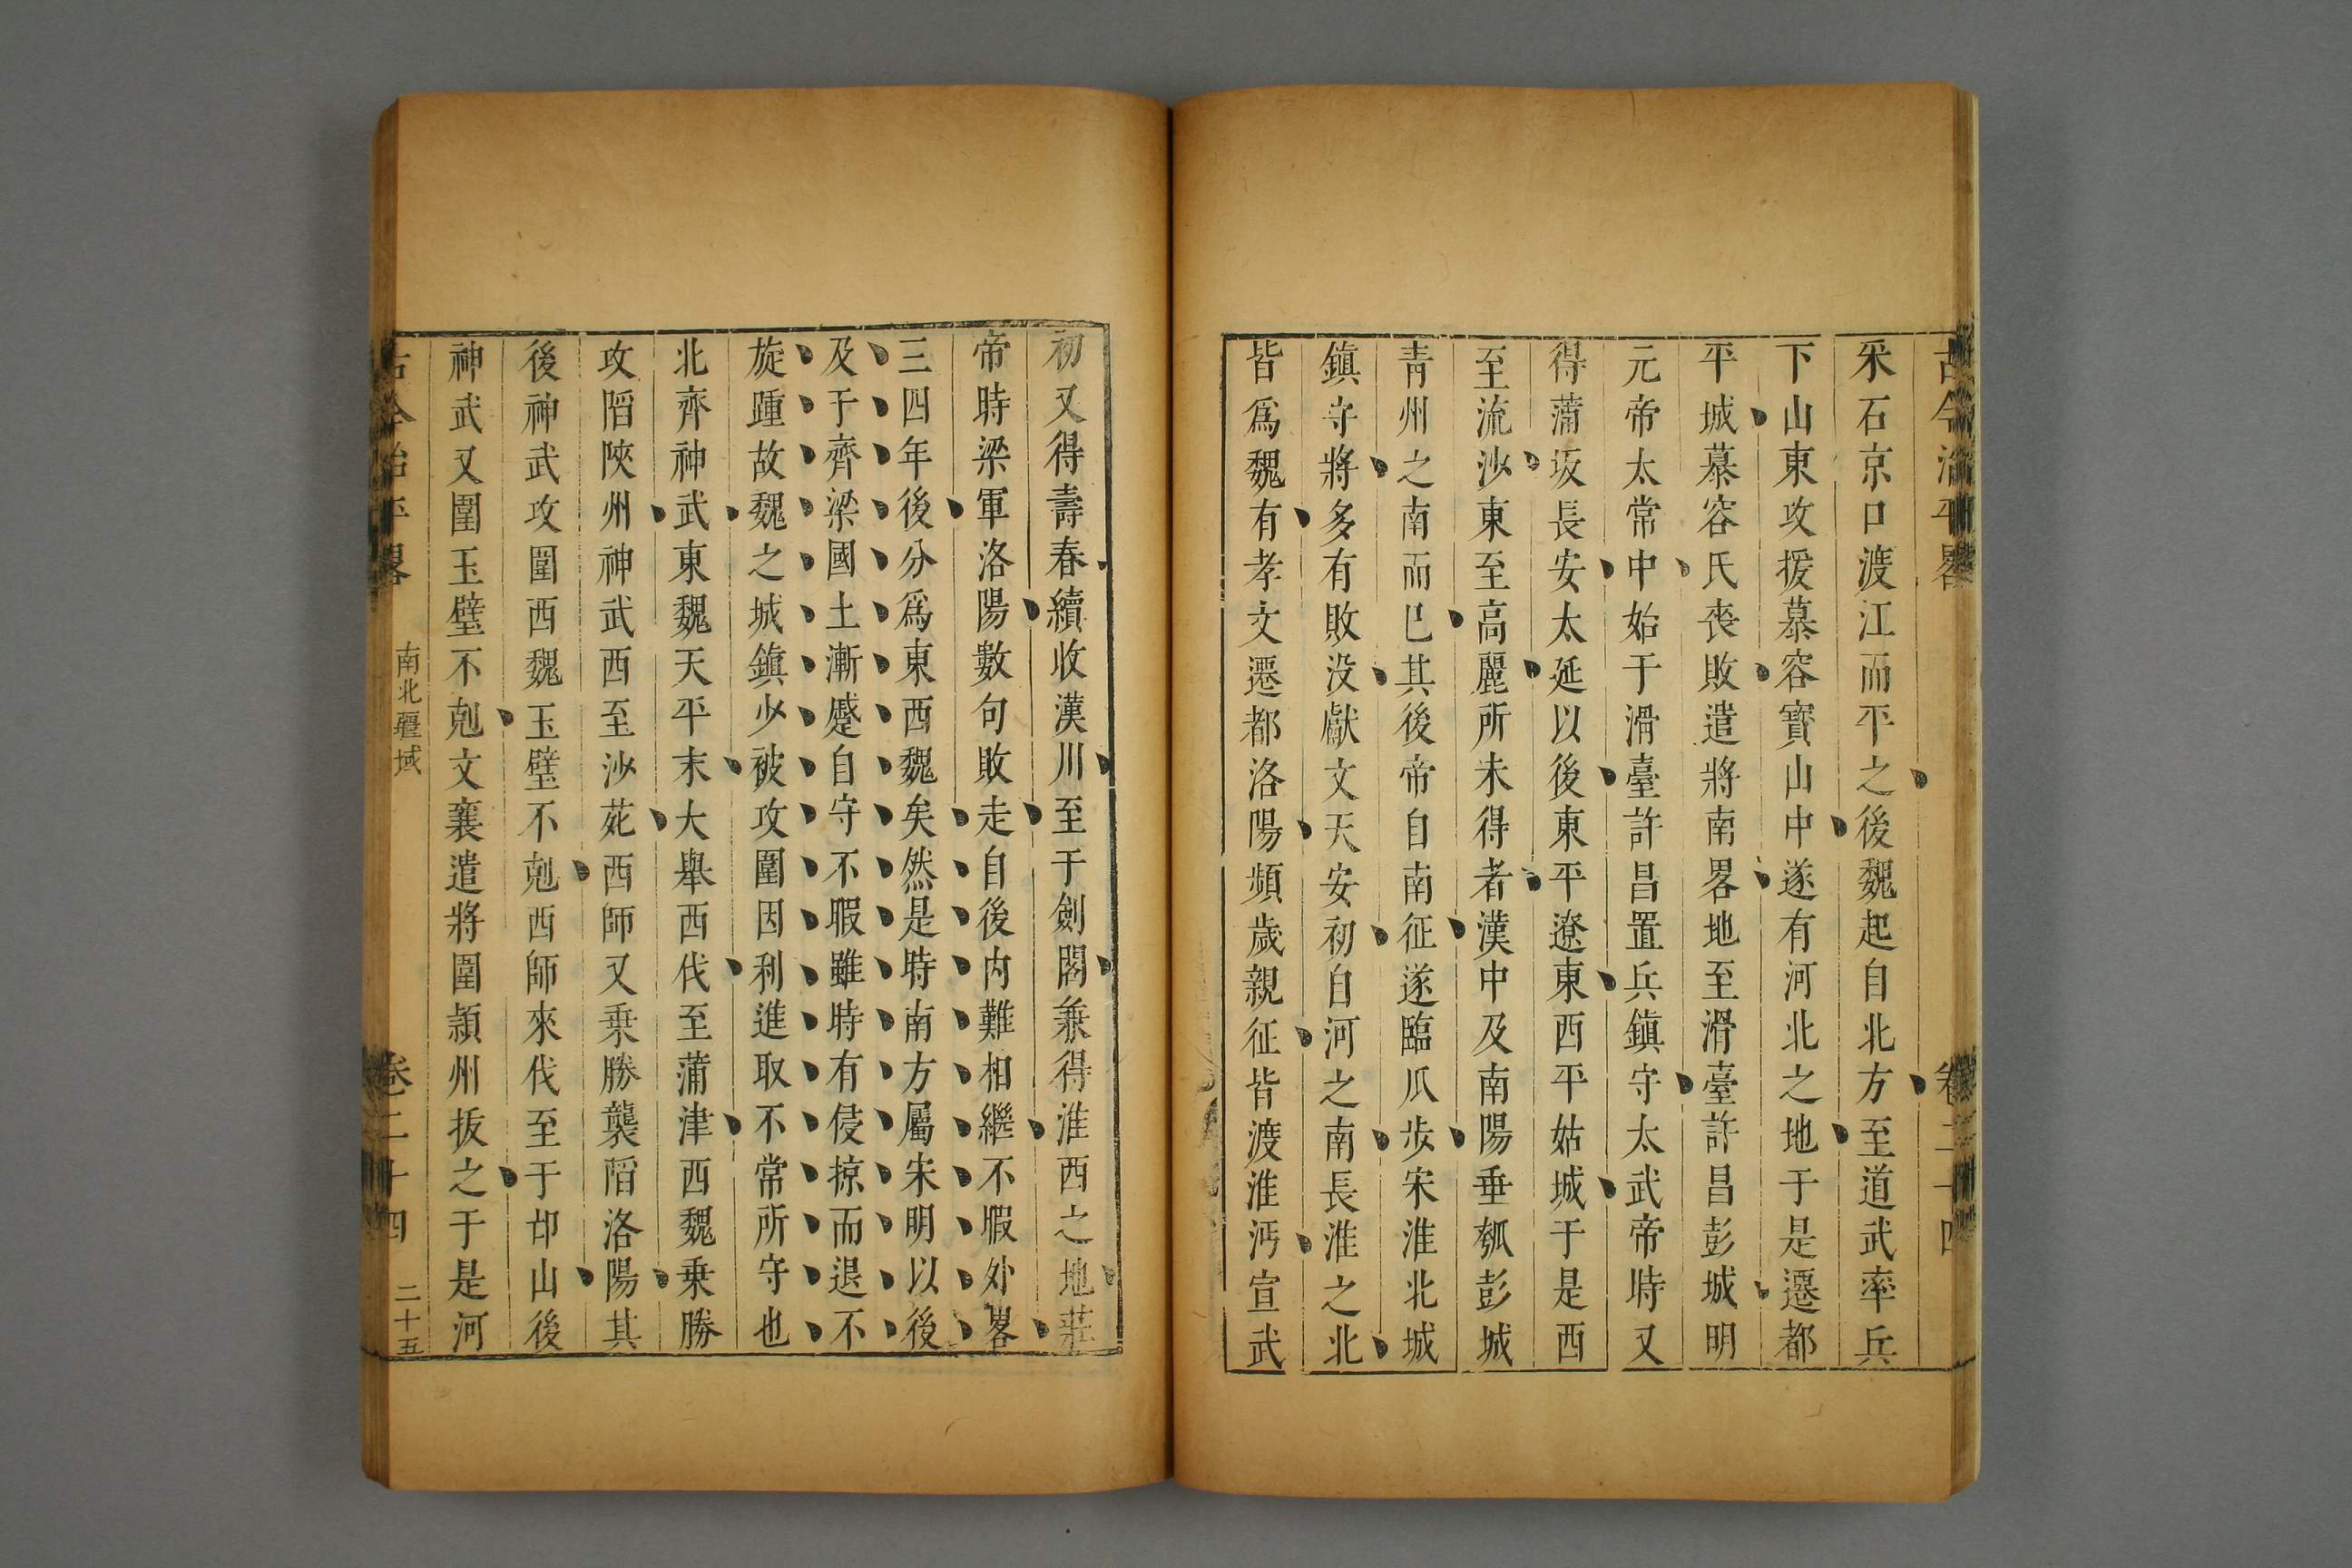 古今治平畧
卷二十四
采石京口渡江而平之後魏起自北方至道武率兵
下山東攻援慕容寶山中遂有河北之地于是遷都
平城慕容氏喪敗遣將南畧地至滑臺許昌彭城明
元帝太常中始于滑臺許昌置兵鎮守太武帝時又
得蒲坂長安太延以後東平遼東西平姑城于是西
至流沙東至高麗所未得者漢中及南陽垂瓠彭城
青州之南而已其後帝自南征遂臨瓜步宋淮北城
鎮守將多有敗没獻文天安初自河之南長淮之北
皆爲魏有孝文遷都洛陽頻歲親征皆渡淮沔宣武
初又得壽春續收漢川至于劍閣兼得淮西之地莊
帝時梁軍洛陽數旬敗走自後内難相繼不暇外畧
三四年後分爲東西魏矣然是時南方屬宋明以後
及于齊梁國土漸蹙自守不暇雖時有侵掠而退不
旋踵故魏之城鎮少被攻圍因利進取不常所守也
北齊神武東魏天平末大舉西伐至蒲津西魏乗勝
攻陷陜州神武西至沙苑西師又乗勝襲陷洛陽其
後神武攻圍西魏玉壁不剋西師來伐至于邙山後
神武又圍玉壁不剋文襄遣將圍潁州拔之于是河
古今治平畧
南北疆域
卷二十四
二十五